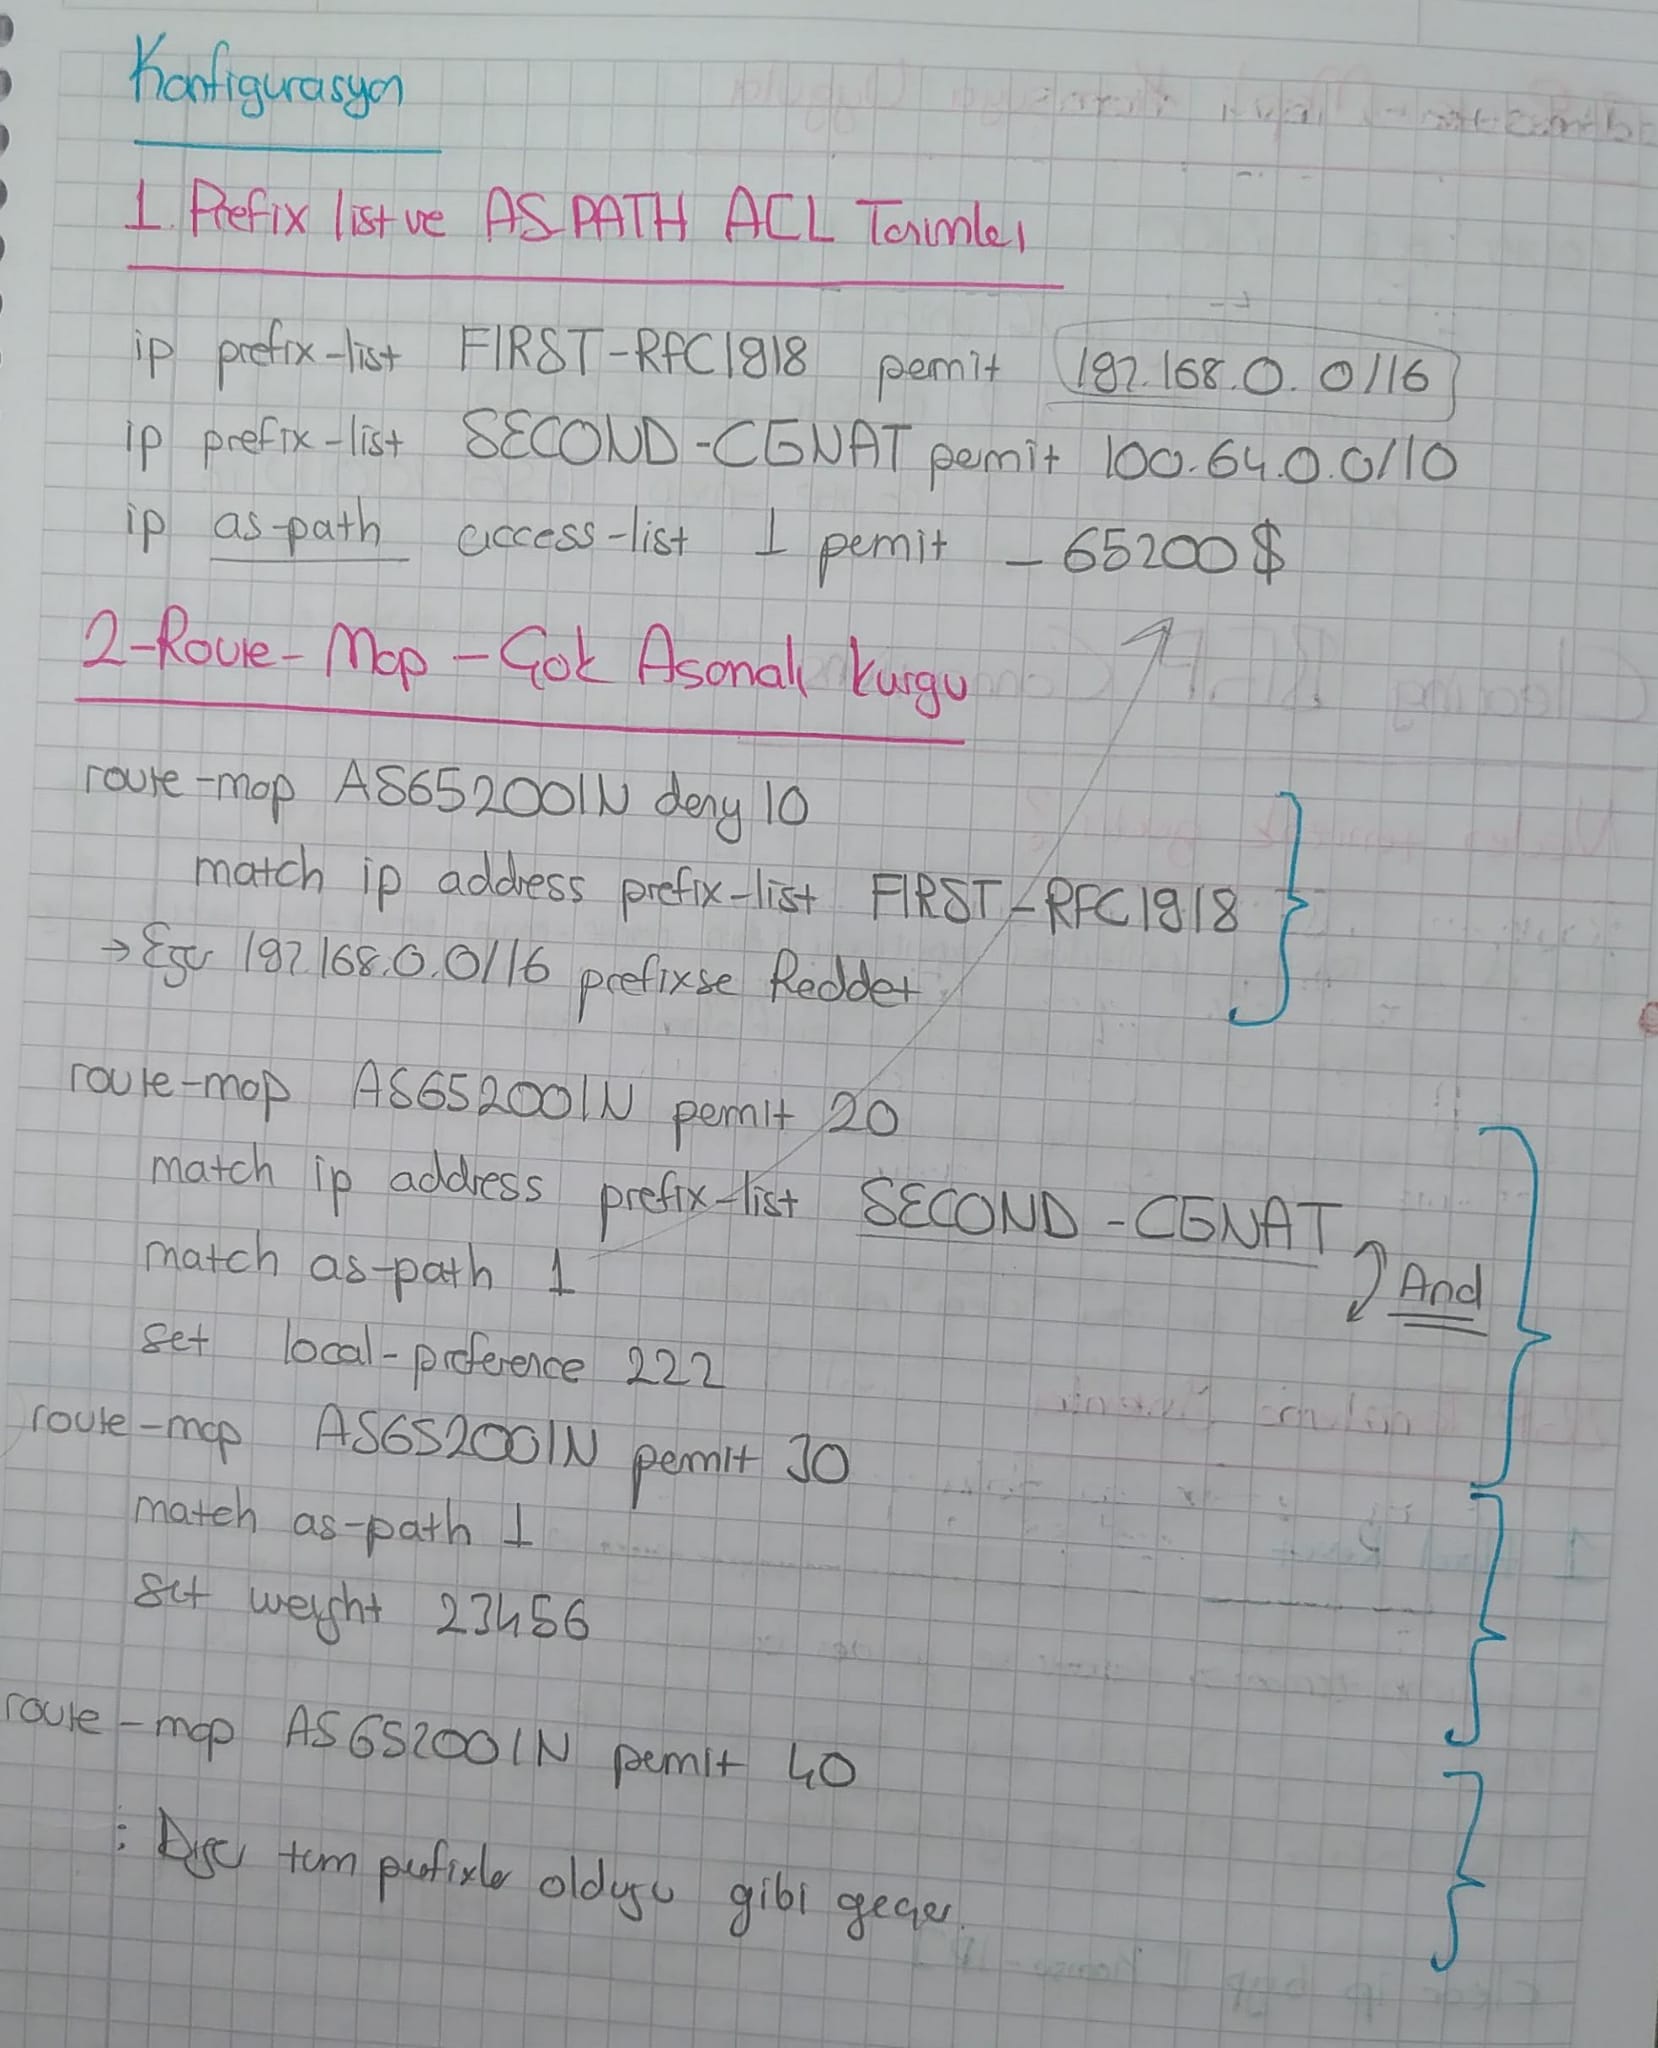 Konfigurasyon
1. Prefix list ve AS PATH ACL Tanımları
ip prefix-list FIRST-RFC1918 permit 192.168.0.0/16
ip prefix-list SECOND-CGNAT permit 100.64.0.0/10
ip as-path access-list 1 permit _65200$
2-Route-Map-Çok Aşamalı Kurgu
route-map AS65200IN deny 10
match ip address prefix-list FIRST-RFC1918
→ Eğer 192.168.0.0/16 prefixse Reddet
route-map AS65200IN permit 20
match ip address prefix-list SECOND-CGNAT
And
match as-path 1
set local-preference 222
route-map AS65200IN permit 30
match as-path 1
set weight 23456
route-map AS65200IN permit 40
: Diğer tüm prefixler olduğu gibi geçer.